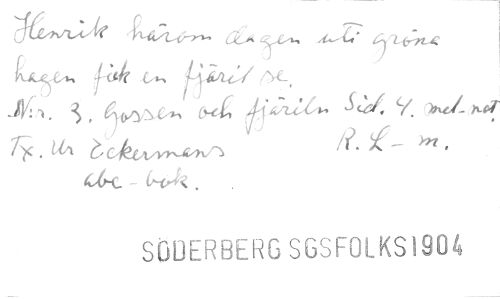 Henrik härom dagen uti gröna
hagen fick en fjäril se.
N:r. 3. Gossen och fjäriln Sid. 4. mel-not.
Tx. Ur Eckermans R. L-m.
abc-bok.
SÖDERBERG SGSFOLKS1904